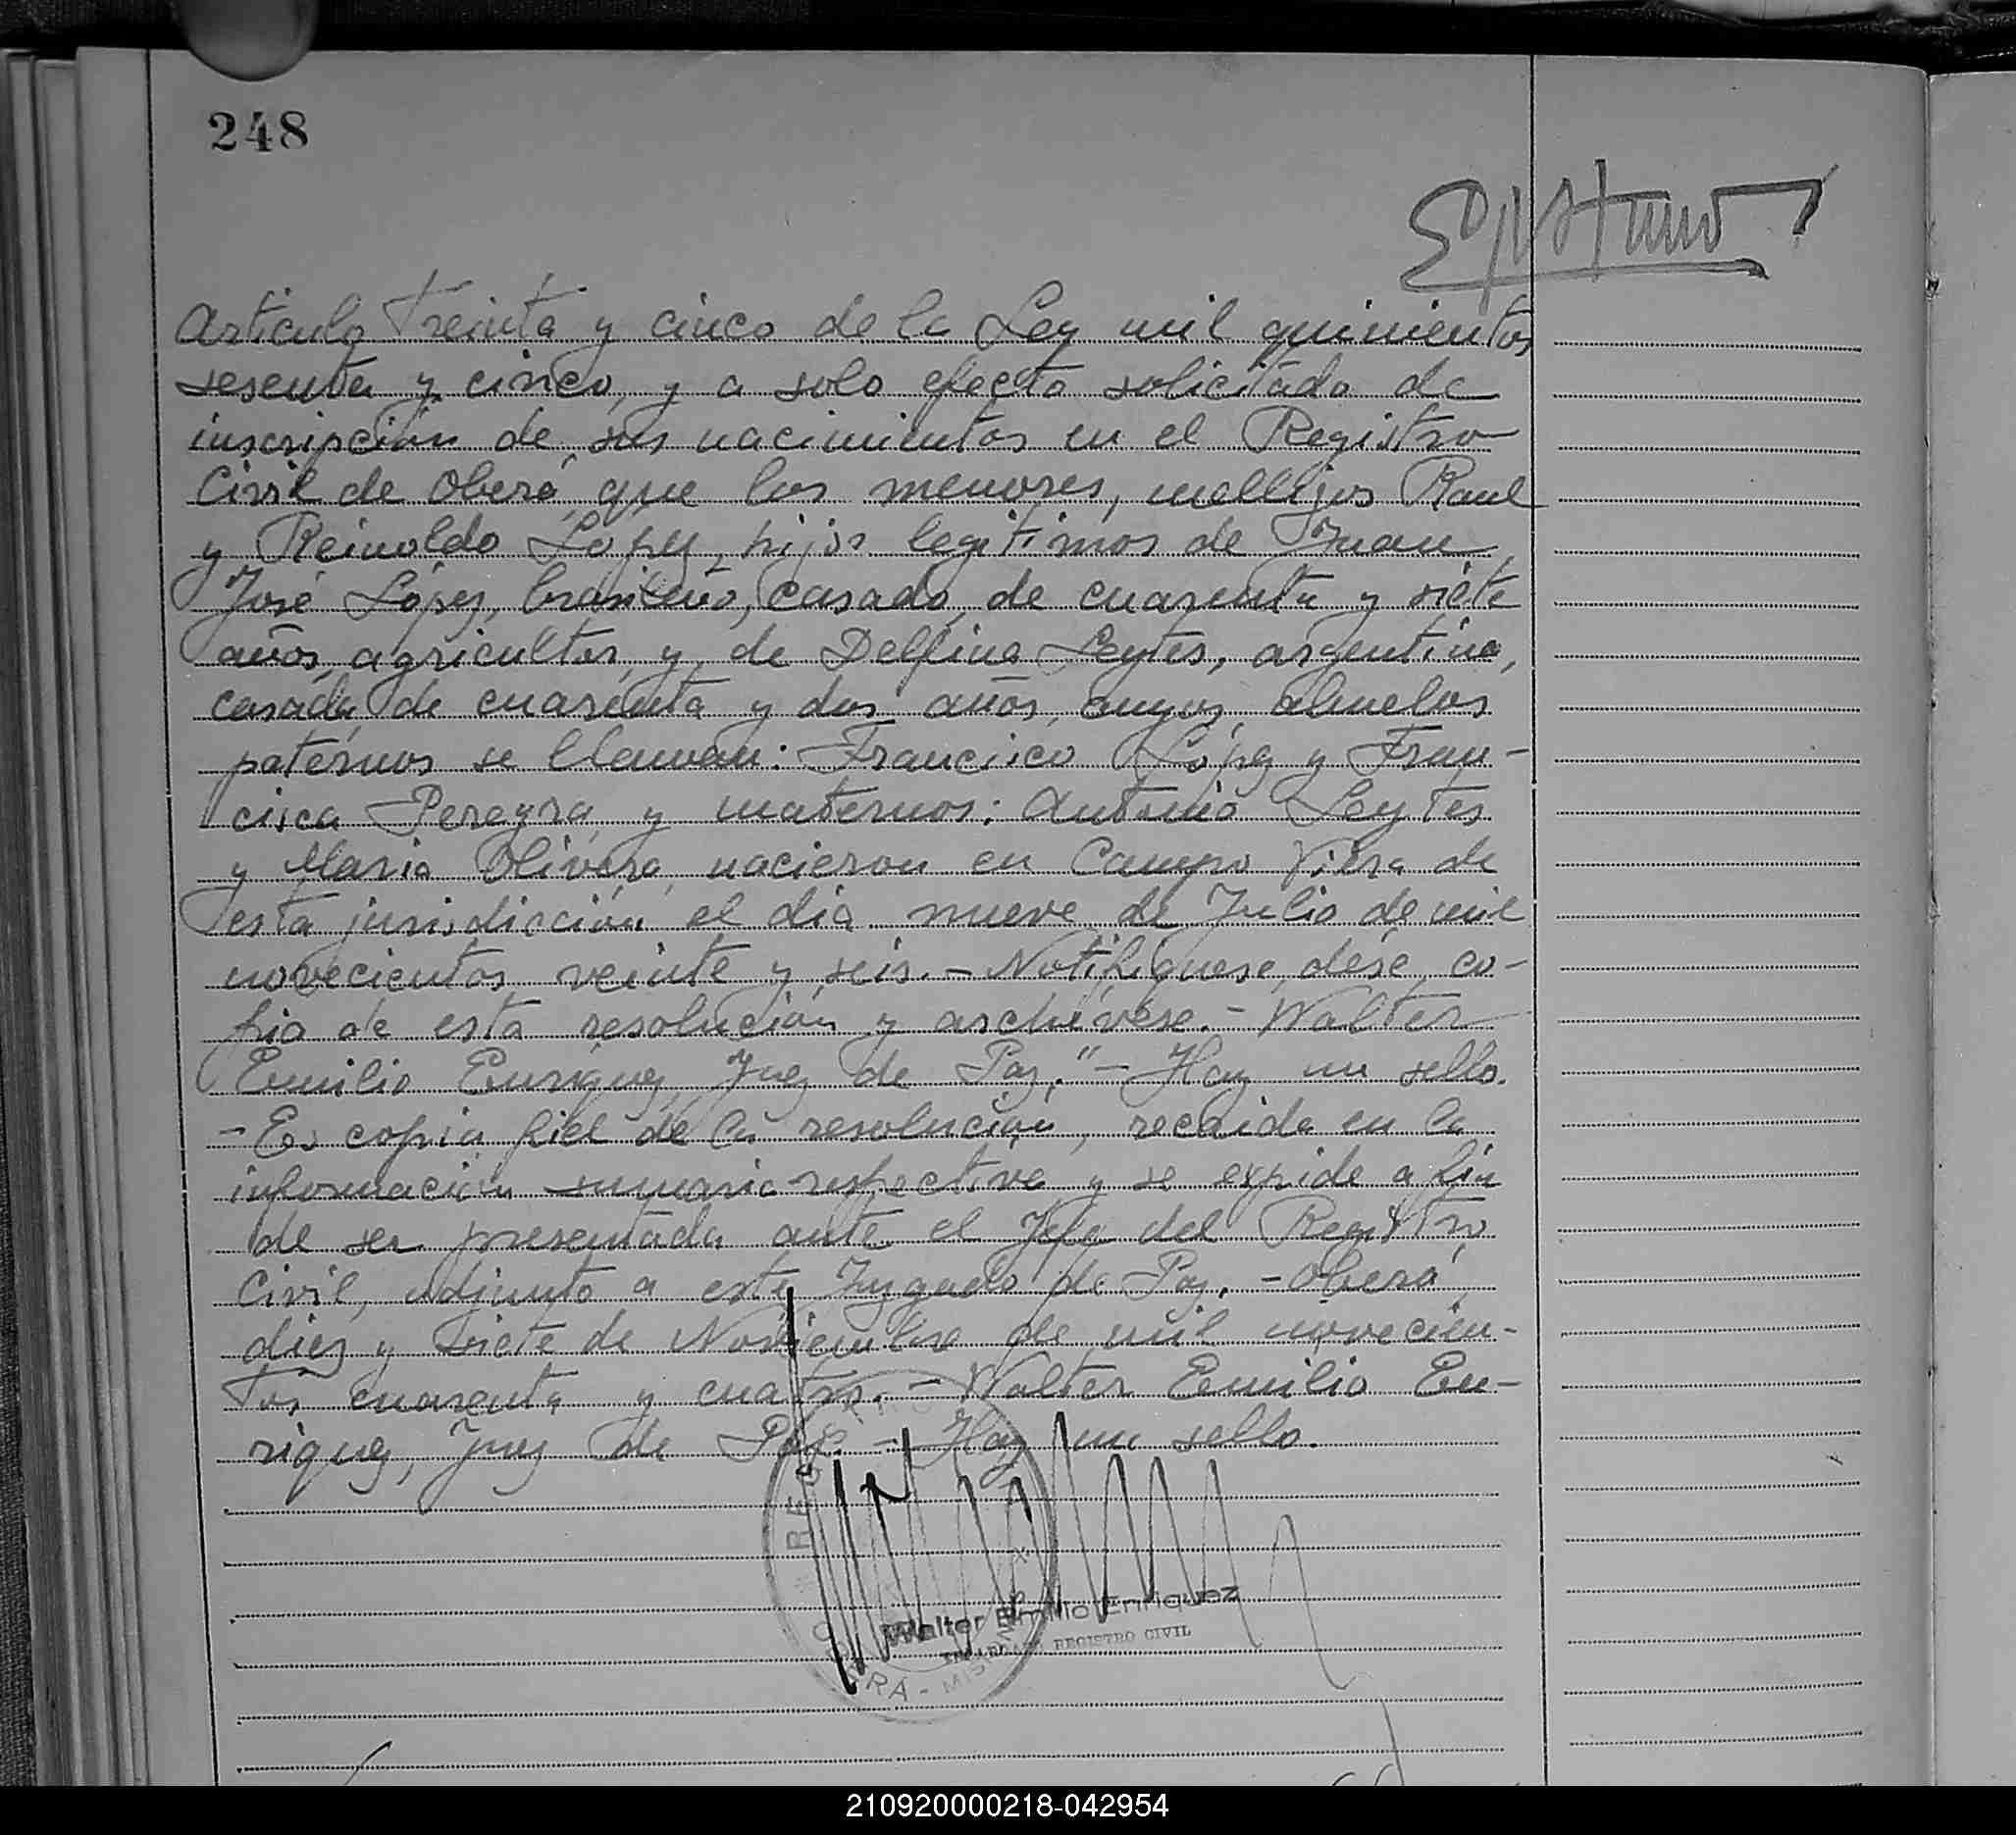 248
Articulo Treinta y cinco de la Ley mil quinientos
sesenta y cinco, y a solo efecto solicitado de
inscripción de sus nacimientos en el Registro
Civil de Oberá que los menores, mellijos Raul
y Reinoldo López, hijos legitimos de Juan
José López, brasileño, casado, de cuarenta y siete
años, agricultor, y de Delfina Leytes, argentina,
casada, de cuarenta y dos años, cuyos abuelos
paternos se llaman: Francisco López y Fran-
cisca Pereyra y maternos: Antonio Leytes
y Maria Olivera, nacieron en Campo Viera de
esta jurisdicción el dia nueve de Julio de mil
novecientos veinte y seis.- Notifiquese, dése co-
pia de esta resolución y archívese.- Walter
Emilio Enriquez, Juez de Paz."- Hay un sello.
-Es copia fiel de la resolución, recaida en la
información sumaria respectiva y se expide a fin
de ser presentada ante el Jefe del Registro
Civil, adjunto a este Juzgado de Paz.-Oberá,
diez y siete de Noviembre de mil novecien-
tos cuarenta y cuatro.- Walter Emilio En-
riquez, Juez de Paz.- Hay un sello.
Walter Emilio Enriquez
ENCARGADO REGISTRO CIVIL
210920000218-042954